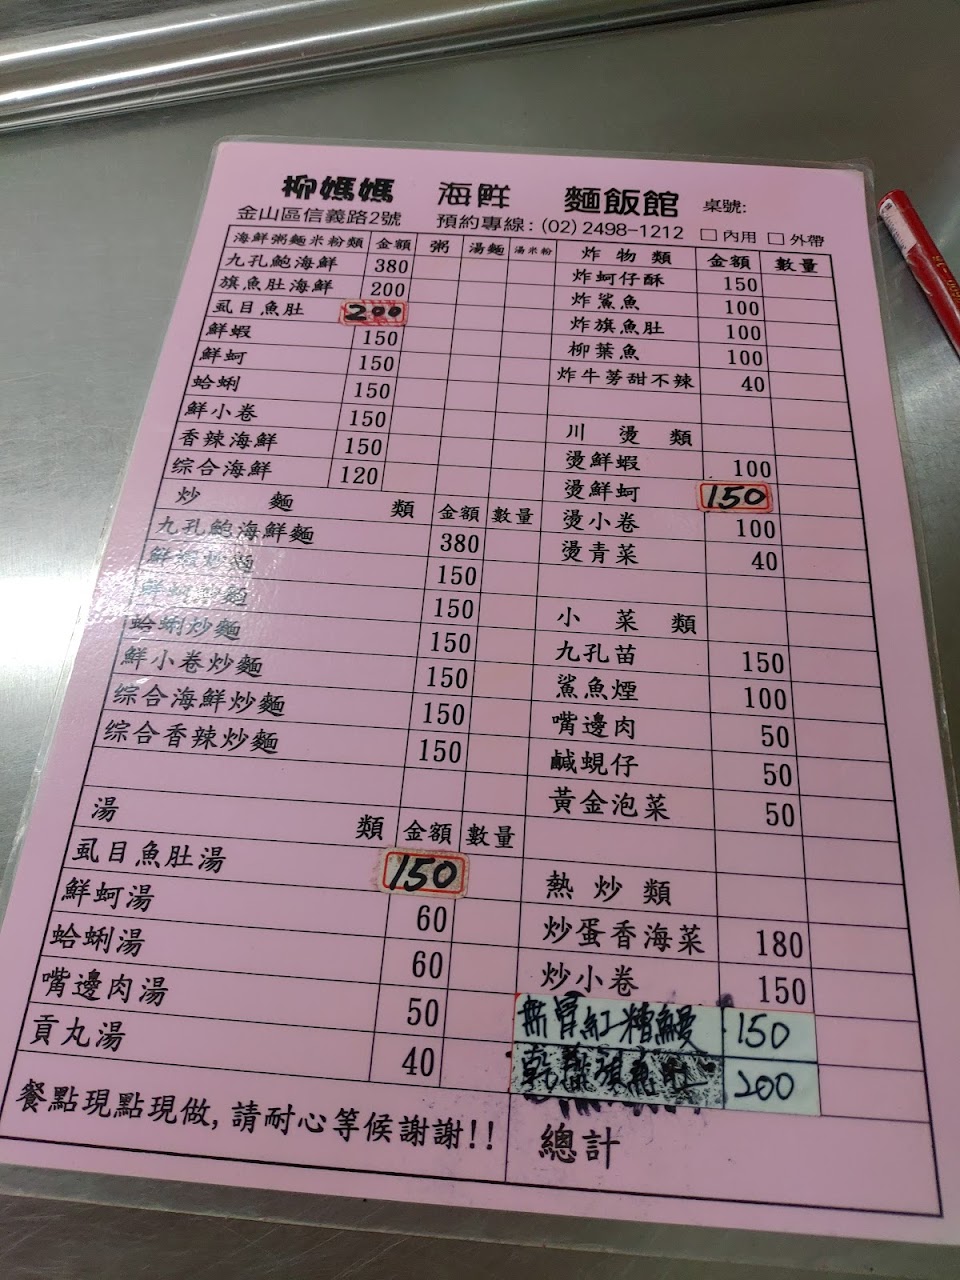 柳媽媽 海鮮 麵飯館 桌號:
金山區信義路2號 預約專線:(02) 2498-1212 □內用 □外帶
海鮮粥麵米粉類 金額 粥 湯麵 湯米粉
九孔鮑海鮮 380
旗魚肚海鮮 200
虱目魚肚 200
鮮蝦 150
鮮蚵 150
蛤蜊 150
鮮小卷 150
香辣海鮮 150
综合海鮮 120
炒麵類 金額 數量
九孔鮑海鮮麵 380
鮮蝦炒麵 150
鮮蚵炒麵 150
蛤蜊炒麵 150
鮮小卷炒麵 150
综合海鮮炒麵 150
综合香辣炒麵 150
湯類 金額 數量
虱目魚肚湯 150
鮮蚵湯 60
蛤蜊湯 60
嘴邊肉湯 50
貢丸湯 40
餐點現點現做,請耐心等候謝謝!!
炸物類 金額 數量
炸蚵仔酥 150
炸鯊魚 100
炸旗魚肚 100
柳葉魚 100
炸牛蒡甜不辣 40
川燙類
燙鮮蝦 100
燙鮮蚵 150
燙小卷 100
燙青菜 40
小菜類
九孔苗 150
鯊魚煙 100
嘴邊肉 50
鹹蜆仔 50
黃金泡菜 50
熱炒類
炒蛋香海菜 180
炒小卷 150
無骨紅糟鰻 150
乾煎旗魚肚 200
總計